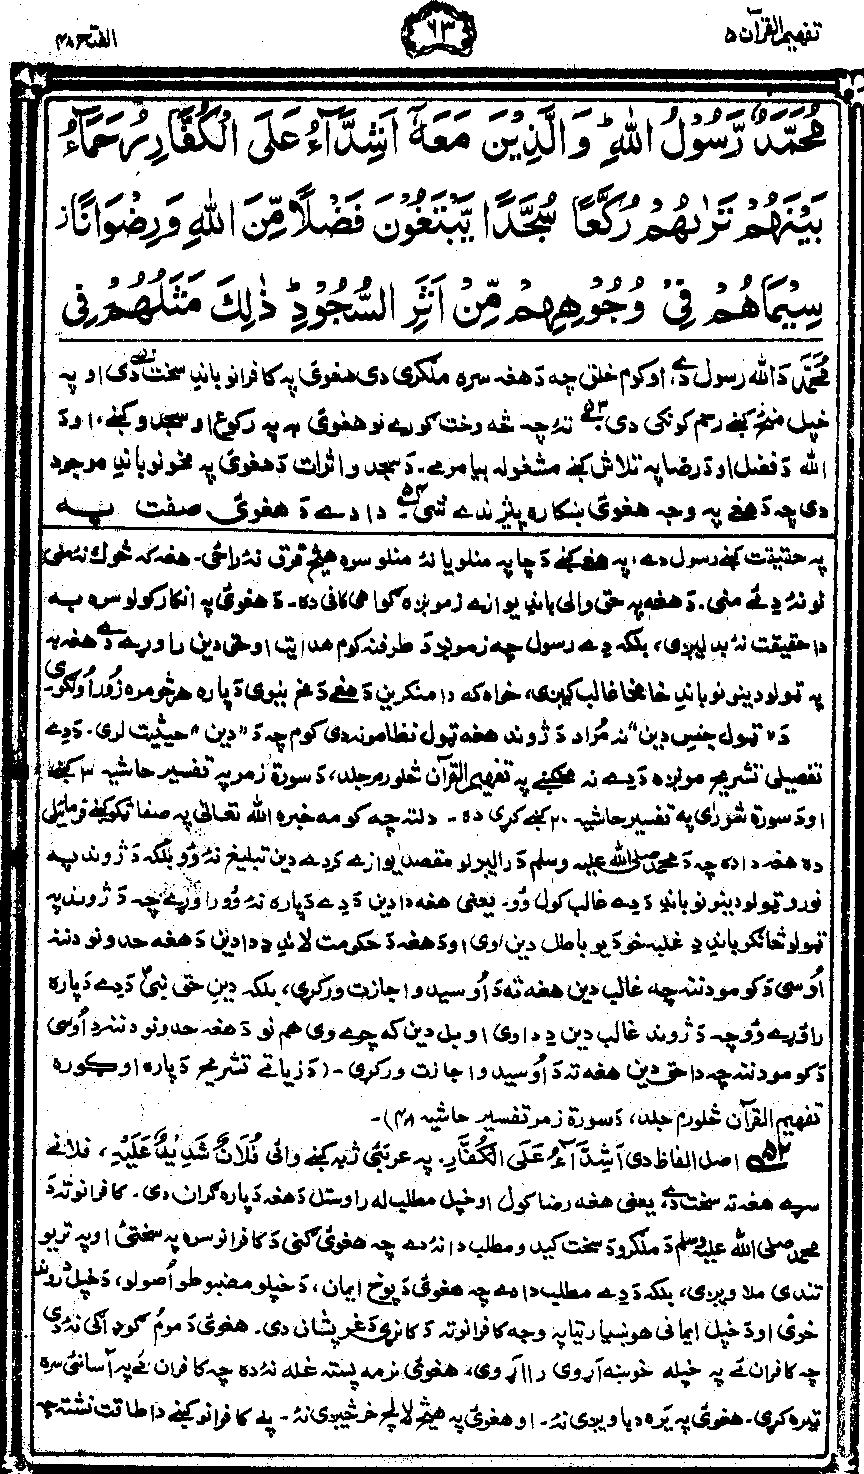 تفهيم القرآن ۵
۶۳
الفتح ۴۸
مُحَمَّدٌ رَّسُوْلُ اللّٰهِ ؕ وَالَّذِيْنَ مَعَهٗٓ اَشِدَّآءُ عَلَى الْكُفَّارِ رُحَمَآءُ
بَيْنَهُمْ تَرٰىهُمْ رُكَّعًا سُجَّدًا يَّبْتَغُوْنَ فَضْلًا مِّنَ اللّٰهِ وَرِضْوَانًا ز
سِيْمَاهُمْ فِيْ وُجُوْهِهِمْ مِّنْ اَثَرِ السُّجُوْدِ ؕ ذٰلِكَ مَثَلُهُمْ فِي
محمّد دَ الله رسول دے، او كوم خلق چه دَ هغه سره ملګري دي هغوئ په كافرانو باندِ سخت دي او په
خپل منځ كښے رحم كونكي دي تهٔ چه څه وخت ګورے نو هغوئ به په ركوع او سجدو كښے، او دَ
الله دَ فضل او دَ رضا په تلاش كښے مشغوله بيا مومے. دَ سجدو اثرات دَ هغوئ په مخونو باندِ موجود
دي چه دَ هغے په وجه هغوئ ښكاره پيژندے شي. دا دے دَ هغوئ صفت په
په حقيقت كښے رسول دے، په هغے كښے دَ چا په منلو يا نهٔ منلو سره هيڅ فرق نهٔ راځي. هغه كه څوك نهٔ مني
نو نهٔ دِ ئے مني. دَ هغه په حق والي باندِ يوازے زمونږه ګواهي كافي ده. دَ هغوئ په انكار كولو سره به
دا حقيقت نهٔ بدليږي، بلكه دے رسول چه زمونږ دَ طرفنه كوم هدايت او حق دين راوړے دے هغه به
په ټولو دينونو باندِ خامخا غالب كيږي، خواه كه دا منكرين دَ هغے دَ مخ نيوي دَ پاره هر څومره زور اولګوي
دَ "ټول جنسِ دين" نه مُراد دَ ژوند هغه ټول نظامونه دي كوم چه دَ "دين" حيثيت لري. دَ دے
تفصيلي تشريح مونږه دَ دے نه مخكښے په تفهيم القرآن څلورم جلد، دَ سورة زمر په تفسير حاشيه ۳ كښے
او دَ سورة شورٰى په تفسير حاشيه ۲۰ كښے كړي ده. دلته چه كومه خبره الله تعالىٰ په صفا ټكو كښے فرمائيلي
ده هغه دا ده چه دَ محمد صلى الله عليه وسلم دَ راليږلو مقصد يوازے دَ دے دين تبليغ نهٔ وُو بلكه دَ ژوند په
نورو ټولو دينونو باندِ دَ دے غالب كول وُو. يعني هغه دا دين دَ دے دَ پاره نهٔ وُو راوړے چه دَ ژوند په
ټولو څانګو باندِ دِ غلبه خو دَ يو باطل دين وي او دَ هغه دَ حكومت لاندِ دِ دا دين دَ هغه حدونو دننه
اوُسي دَ كومو دننه چه، غالب دين هغه ته دَ اُوسيدو اجازت وركړي، بلكه دينِ حق نبيؐ دَ دے دَ پاره
راوړے وُو چه دَ ژوند غالب دين دِ دا وي او بل دين كه چرے وي هم نو دَ هغه حدونو دننه دِ اُوسي
دَ كومو دننه چه دا حق دين هغه ته دَ اُوسيدو اجازت وركړي. (دَ زياتے تشريح دَ پاره اوګوره
تفهيم القرآن څلورم جلد، دَ سورة زمر تفسير حاشيه ۴۸).
۵۲ اصل الفاظ دي اَشِدَّآءُ عَلَى الْكُفَّارِ. په عربئ ژبه كښے وائي فُلَانٌ شَدِيْدٌ عَلَيْهِ، فلانے
سړے هغه ته سخت دے، يعني هغه رضا كول او خپل مطلب له راوستل دَ هغه دَ پاره ګران دي. كافرانو ته دَ
محمد صلى الله عليه وسلم دَ ملګرو دَ سخت كيدو مطلب دا نهٔ دے چه هغوئ ګني دَ كافرانو سره په سختئ او په تريو
تندي ملاويږي، بلكه دَ دے مطلب دا دے چه هغوئ دَ پوخ ايمان، دَ خپلو مضبوطو اُصولو، دَ خپل روند
خوئ او دَ خپل ايماني هوښيارتيا په وجه كافرانو ته دَ كاڼري دَ غر پشان دي. هغوئ دَ موم ګوډاګي نهٔ دي
چه كافران ئے په خپله خوښه اړوي رااړوي، هغوئ نرمه پسته غله نهٔ ده چه كافران ئے په آسانئ سره
تيره كړي. هغوئ په يره دباويږي نهٔ. او هغوئ په هيڅ لالچ خرڅيږي نهٔ. په كافرانو كښے دا طاقت نشته چه